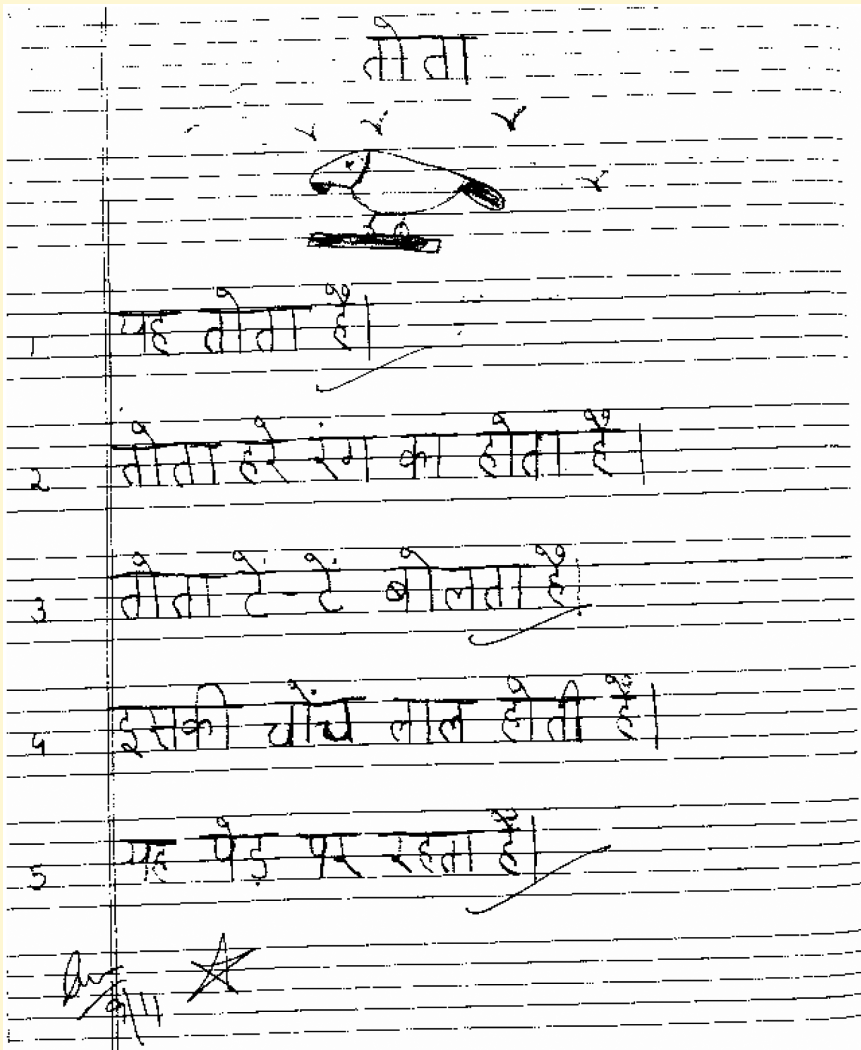 तोता
1 यह तोता है।
2 तोता हरे रंग का होता है।
3 तोता टें-टें बोलता है।
4 इसकी चोंच लाल होती है।
5 यह पेड़ पर रहता है।
9/11